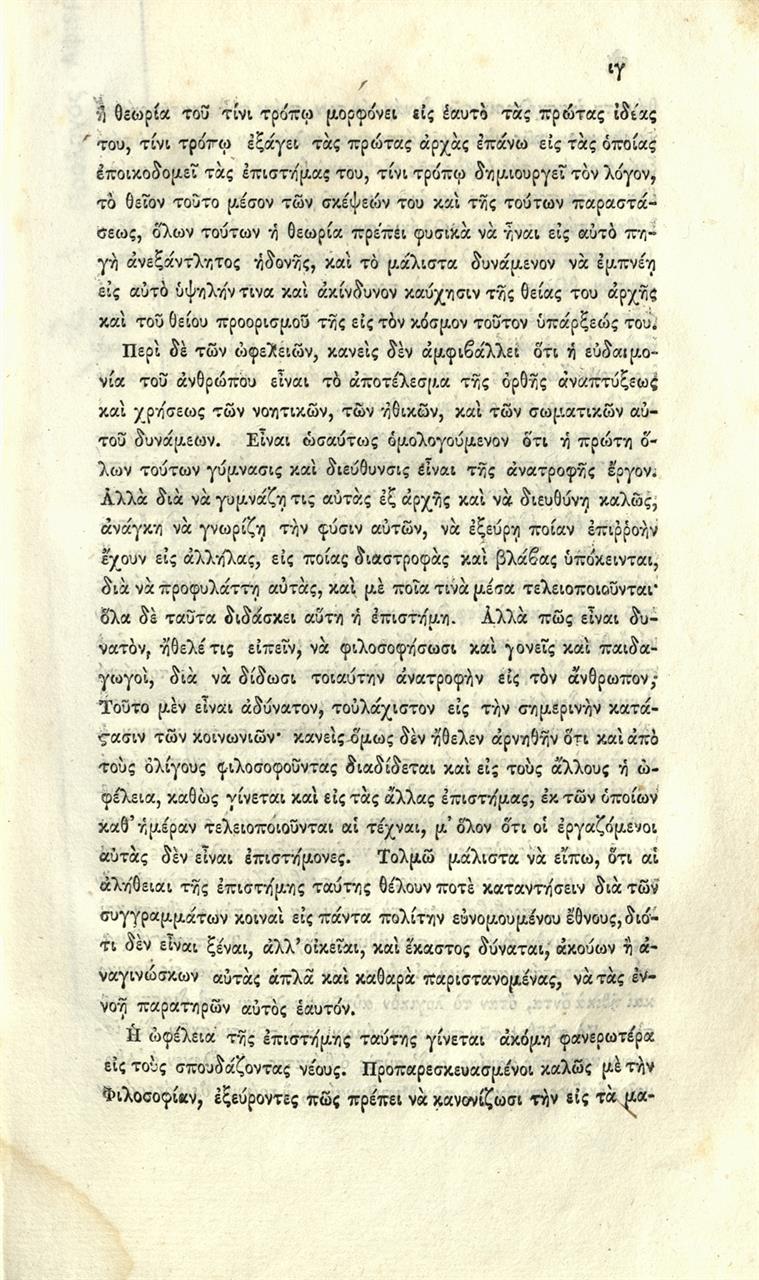 ιγ
ἡ θεωρία τοῦ τίνι τρόπῳ μορφόνει εἰς ἑαυτὸ τὰς πρώτας ἰδέας
του, τίνι τρόπῳ ἐξάγει τὰς πρώτας ἀρχὰς ἐπάνω εἰς τὰς ὁποίας
ἐποικοδομεῖ τὰς ἐπιστήμας του, τίνι τρόπῳ δημιουργεῖ τὸν λόγον,
τὸ θεῖον τοῦτο μέσον τῶν σκέψεών του καὶ τῆς τούτων παραστά-
σεως, ὅλων τούτων ἡ θεωρία πρέπει φυσικὰ νὰ ἦναι εἰς αὐτὸ πη-
γὴ ἀνεξάντλητος ἡδονῆς, καὶ τὸ μάλιστα δυνάμενον νὰ ἐμπνέῃ
εἰς αὐτὸ ὑψηλήν τινα καὶ ἀκίνδυνον καύχησιν τῆς θείας του ἀρχῆς
καὶ τοῦ θείου προορισμοῦ τῆς εἰς τὸν κόσμον τοῦτον ὑπάρξεώς του.
Περὶ δὲ τῶν ὠφελειῶν, κανεὶς δὲν ἀμφιβάλλει ὅτι ἡ εὐδαιμο-
νία τοῦ ἀνθρώπου εἶναι τὸ ἀποτέλεσμα τῆς ὀρθῆς ἀναπτύξεως
καὶ χρήσεως τῶν νοητικῶν, τῶν ἠθικῶν, καὶ τῶν σωματικῶν αὐ-
τοῦ δυνάμεων. Εἶναι ὡσαύτως ὁμολογούμενον ὅτι ἡ πρώτη ὅ-
λων τούτων γύμνασις καὶ διεύθυνσις εἶναι τῆς ἀνατροφῆς ἔργον.
Ἀλλὰ διὰ νὰ γυμνάζῃ τις αὐτὰς ἐξ ἀρχῆς καὶ νὰ διευθύνῃ καλῶς,
ἀνάγκη νὰ γνωρίζῃ τὴν φύσιν αὐτῶν, νὰ ἐξεύρῃ ποίαν ἐπιῤῥοὴν
ἔχουν εἰς ἀλλήλας, εἰς ποίας διαστροφὰς καὶ βλάβας ὑπόκεινται,
διὰ νὰ προφυλάττῃ αὐτὰς, καὶ μὲ ποῖα τινὰ μέσα τελειοποιοῦνται·
ὅλα δὲ ταῦτα διδάσκει αὕτη ἡ ἐπιστήμη. Ἀλλὰ πῶς εἶναι δυ-
νατὸν, ἤθελέ τις εἰπεῖν, νὰ φιλοσοφήσωσι καὶ γονεῖς καὶ παιδα-
γωγοὶ, διὰ νὰ δίδωσι τοιαύτην ἀνατροφὴν εἰς τὸν ἄνθρωπον;
Τοῦτο μὲν εἶναι ἀδύνατον, τοὐλάχιστον εἰς τὴν σημερινὴν κατά-
ϛασιν τῶν κοινωνιῶν· κανεὶς ὅμως δὲν ἤθελεν ἀρνηθῆν ὅτι καὶ ἀπὸ
τοὺς ὀλίγους φιλοσοφοῦντας διαδίδεται καὶ εἰς τοὺς ἄλλους ἡ ὠ-
φέλεια, καθὼς γίνεται καὶ εἰς τὰς ἄλλας ἐπιστήμας, ἐκ τῶν ὁποίων
καθ' ἡμέραν τελειοποιοῦνται αἱ τέχναι, μ' ὅλον ὅτι οἱ ἐργαζόμενοι
αὐτὰς δὲν εἶναι ἐπιστήμονες. Τολμῶ μάλιστα νὰ εἴπω, ὅτι αἱ
ἀλήθειαι τῆς ἐπιστήμης ταύτης θέλουν ποτὲ καταντήσειν διὰ τῶν
συγγραμμάτων κοιναὶ εἰς πάντα πολίτην εὐνομουμένου ἔθνους, διό-
τι δὲν εἶναι ξέναι, ἀλλ' οἰκεῖαι, καὶ ἕκαστος δύναται, ἀκούων ἢ ἀ-
ναγινώσκων αὐτὰς ἁπλᾶ καὶ καθαρὰ παριστανομένας, νὰ τὰς ἐν-
νοῇ παρατηρῶν αὐτὸς ἑαυτόν.
Ἡ ὠφέλεια τῆς ἐπιστήμης ταύτης γίνεται ἀκόμη φανερωτέρα
εἰς τοὺς σπουδάζοντας νέους. Προπαρεσκευασμένοι καλῶς μὲ τὴν
Φιλοσοφίαν, ἐξεύροντες πῶς πρέπει νὰ κανονίζωσι τὴν εἰς τὰ μα-